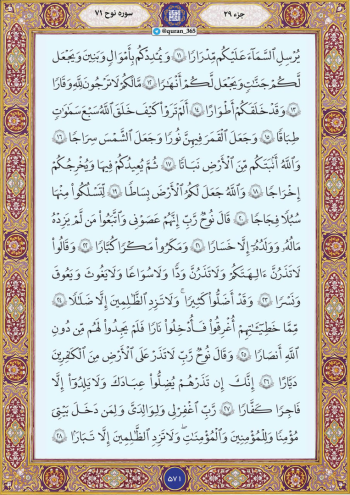 جزء ۲۹
@quran_365
سوره نوح ۷۱
يُرْسِلِ ٱلسَّمَآءَ عَلَيْكُم مِّدْرَارًا ۝١١ وَيُمْدِدْكُم بِأَمْوَٰلٍ وَبَنِينَ وَيَجْعَل
لَّكُمْ جَنَّٰتٍ وَيَجْعَل لَّكُمْ أَنْهَٰرًا ۝١٢ مَّا لَكُمْ لَا تَرْجُونَ لِلَّهِ وَقَارًا
۝١٣ وَقَدْ خَلَقَكُمْ أَطْوَارًا ۝١٤ أَلَمْ تَرَوْا۟ كَيْفَ خَلَقَ ٱللَّهُ سَبْعَ سَمَٰوَٰتٍ
طِبَاقًا ۝١٥ وَجَعَلَ ٱلْقَمَرَ فِيهِنَّ نُورًا وَجَعَلَ ٱلشَّمْسَ سِرَاجًا ۝١٦
وَٱللَّهُ أَنۢبَتَكُم مِّنَ ٱلْأَرْضِ نَبَاتًا ۝١٧ ثُمَّ يُعِيدُكُمْ فِيهَا وَيُخْرِجُكُمْ
إِخْرَاجًا ۝١٨ وَٱللَّهُ جَعَلَ لَكُمُ ٱلْأَرْضَ بِسَاطًا ۝١٩ لِّتَسْلُكُوا۟ مِنْهَا
سُبُلًا فِجَاجًا ۝٢٠ قَالَ نُوحٌ رَّبِّ إِنَّهُمْ عَصَوْنِى وَٱتَّبَعُوا۟ مَن لَّمْ يَزِدْهُ
مَالُهُۥ وَوَلَدُهُۥٓ إِلَّا خَسَارًا ۝٢١ وَمَكَرُوا۟ مَكْرًا كُبَّارًا ۝٢٢ وَقَالُوا۟
لَا تَذَرُنَّ ءَالِهَتَكُمْ وَلَا تَذَرُنَّ وَدًّا وَلَا سُوَاعًا وَلَا يَغُوثَ وَيَعُوقَ
وَنَسْرًا ۝٢٣ وَقَدْ أَضَلُّوا۟ كَثِيرًا ۖ وَلَا تَزِدِ ٱلظَّٰلِمِينَ إِلَّا ضَلَٰلًا ۝٢٤
مِّمَّا خَطِيٓـَٰٔتِهِمْ أُغْرِقُوا۟ فَأُدْخِلُوا۟ نَارًا فَلَمْ يَجِدُوا۟ لَهُم مِّن دُونِ
ٱللَّهِ أَنصَارًا ۝٢٥ وَقَالَ نُوحٌ رَّبِّ لَا تَذَرْ عَلَى ٱلْأَرْضِ مِنَ ٱلْكَٰفِرِينَ
دَيَّارًا ۝٢٦ إِنَّكَ إِن تَذَرْهُمْ يُضِلُّوا۟ عِبَادَكَ وَلَا يَلِدُوٓا۟ إِلَّا
فَاجِرًا كَفَّارًا ۝٢٧ رَّبِّ ٱغْفِرْ لِى وَلِوَٰلِدَىَّ وَلِمَن دَخَلَ بَيْتِىَ
مُؤْمِنًا وَلِلْمُؤْمِنِينَ وَٱلْمُؤْمِنَٰتِ وَلَا تَزِدِ ٱلظَّٰلِمِينَ إِلَّا تَبَارًۢا ۝٢٨
۵۷۱